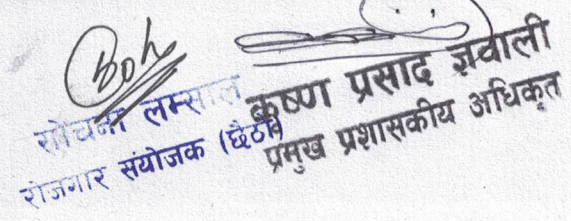 सोचना लम्साल
रोजगार संयोजक (छैठौ)
कृष्ण प्रसाद ज्ञवाली
प्रमुख प्रशासकीय अधिकृत